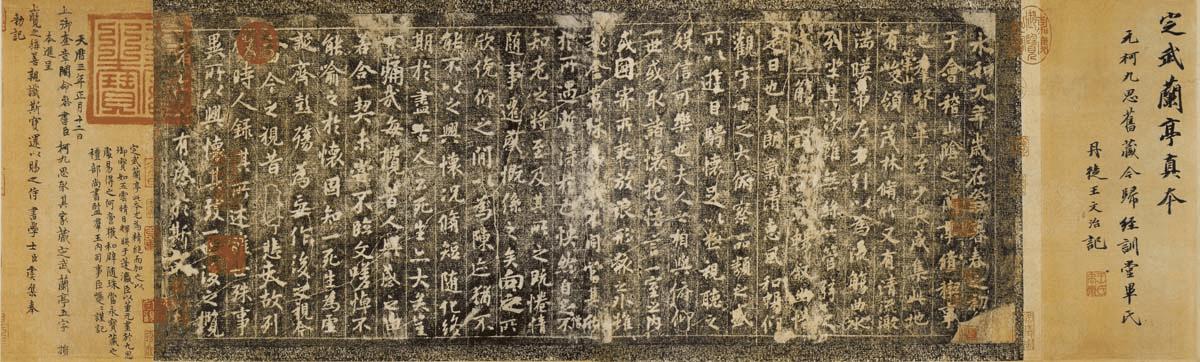 定武蘭亭真本
元柯九思舊藏今歸經訓堂畢氏
丹徒王文治記
永和九年歲在癸丑暮春之初
于會稽山陰之蘭亭脩稧事
也羣賢畢至少長咸集此地
有峻領茂林脩竹又有清流激
湍暎帶左右引以為流觴曲水
列坐其次雖無
一觴一詠亦足以暢敘幽情
是日也天朗氣清惠風和暢仰
觀宇宙之大俯察品類之盛
所以遊目騁懷足以極視聽之
娛信可樂也夫人之相與俯仰
一世或取諸懷抱悟言一室之內
或因寄所託放浪形骸之外雖
趣舍萬殊靜躁不同當其欣
於所遇暫得於己快然自足不
知老之將至及其所之既惓情
隨事遷感慨係之矣向之所
欣俛仰之間以為陳迹猶不
能不以之興懷況脩短隨化終
期於盡古人云死生亦大矣豈
不痛哉每攬昔人興感之由
若合一契未嘗不臨文嗟悼不
能喻之於懷固知一死生為虛
誕齊彭殤為妄作後之視今
亦由今之視昔悲夫故列
敘時人錄其所述雖世殊事
異所以興懷其致一也後之攬
者亦將有感於斯文
定武蘭亭此本尤為精絶而加之以
御寶如五雲晴日輝映於蓬瀛臣以董元畫於九思
處易得之何啻獲和璧隨珠當永寶藏之
禮部尚書監羣玉內司事臣巎巎謹記
天曆三年正月十二日
上御奎章閣命參書臣柯九思取其家藏定武蘭亭五字損
本進呈
上覽之稱善親識斯寶還以賜之侍書學士臣虞集奉
勑記